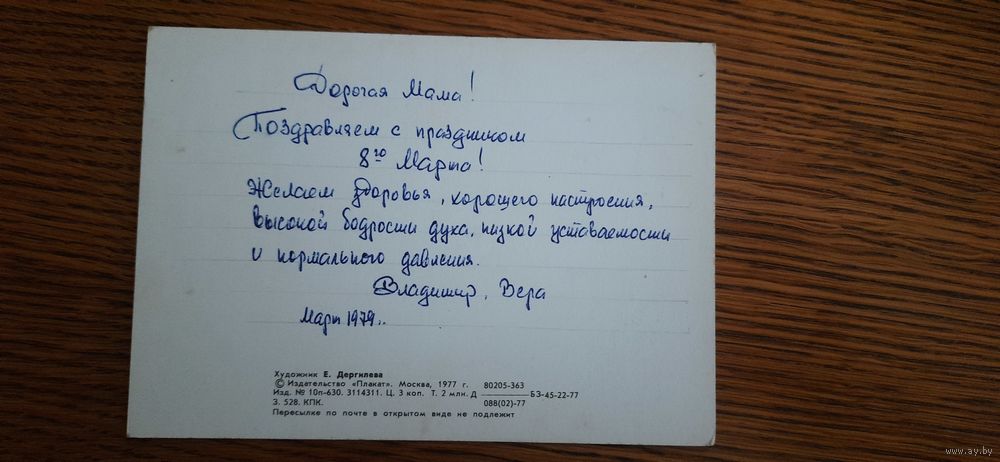 Дорогая Мама!
Поздравляем с праздником
8го Марта!
Желаем здоровья, хорошего настроения,
высокой бодрости духа, низкой уставаемости
и нормального давления.
Владимир, Вера
Март 1979г.
Художник Е. Дергилева
© Издательство «Плакат». Москва, 1977 г. 80205-363
Изд. № 10п-630. 3114311. Ц. 3 коп. Т. 2 млн. Д ——— БЗ-45-22-77
З. 528. КПК. 088(02)-77
Пересылке по почте в открытом виде не подлежит
www.ay.by